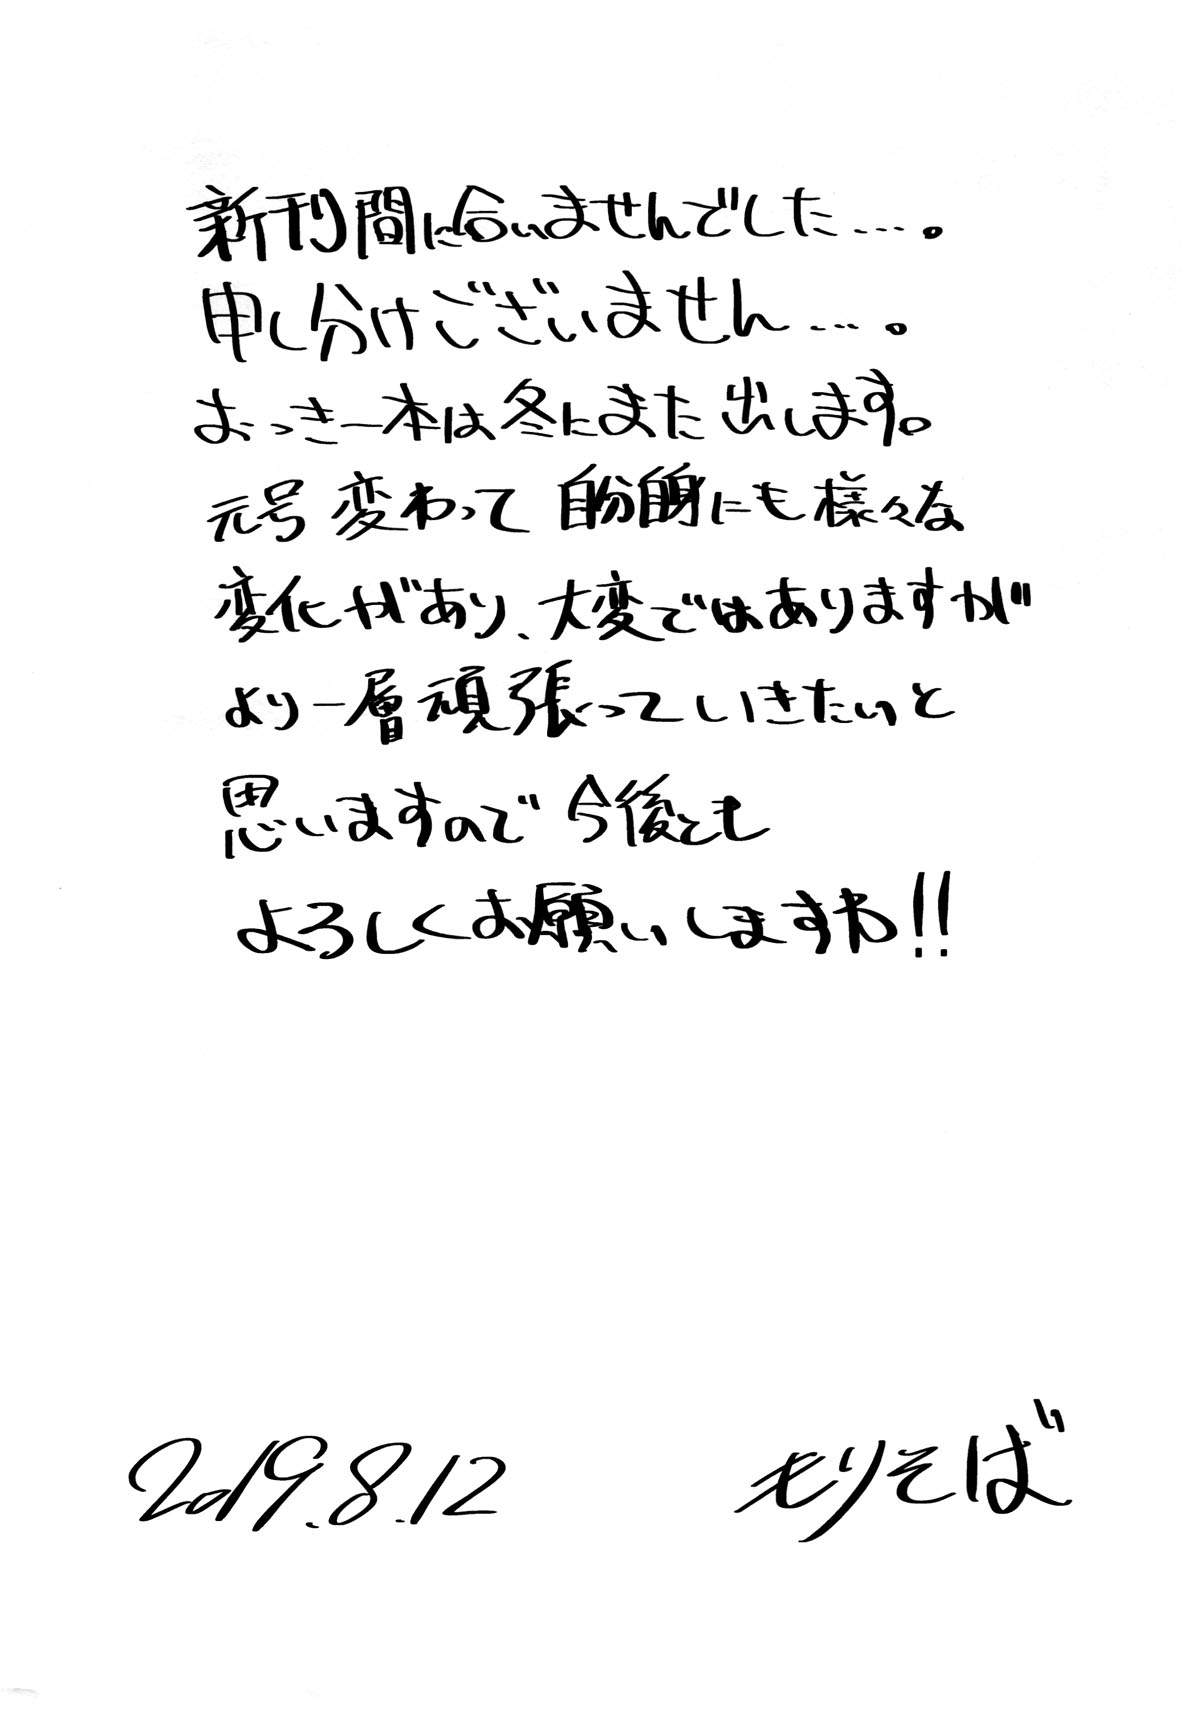 新刊間に合いませんでした…。
申し分けございません…。
おっきー本は冬にまた出します。
元号変わって自分自身にも様々な
変化があり、大変ではありますが
より一層頑張っていきたいと
思いますので今後とも
よろしくお願いしますわ!!
2019.8.12 もりそば